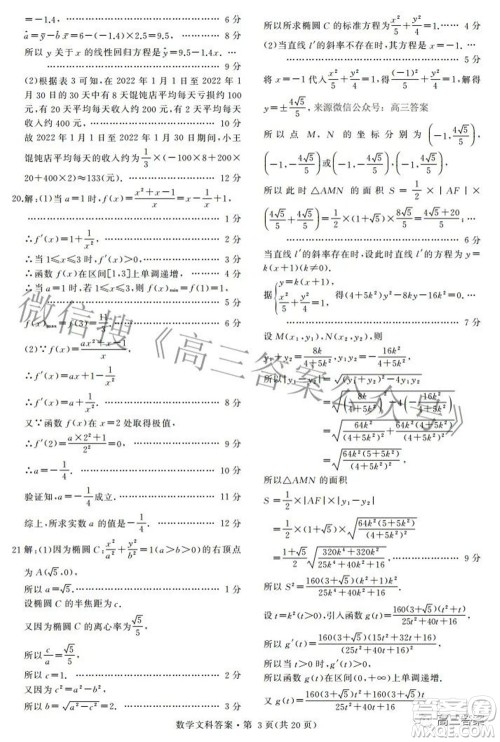 −1.4. ………………… 6 分
â=ȳ−b̂x̄=6−(−1.4)×2.5=9.5. … 8 分
所以 y 关于 x 的线性回归方程是 ŷ=9.5−1.4x.
………………… 9 分
(2)根据表 3 可知，在 2022 年 1 月 1 日至 2022 年 1
月 30 日的 30 天中有 8 天馄饨店平均每天亏损约 100
元，有 20 天平均每天收入约 200 元，有 2 天平均每天
收入约 400 元. ………………… 10 分
故 2022 年 1 月 1 日至 2022 年 1 月 30 日期间，小王
馄饨店平均每天的收入约为 1/30×(−100×8+200×
20+400×2)≈133(元). ………………… 12 分
20.解:(1)当 a=1 时，f(x)=(x²+x−1)/x=x−1/x+1，
………………… 1 分
∴f′(x)=1+1/x². ………………… 2 分
∴当 1≤x≤3 时，f′(x)>0.
∴函数 f(x)在区间[1,3]上单调递增， ……… 4 分
∴当 a=1 时，若 1≤x≤3，则 f(x)min=f(1)=1，
f(x)max=f(3)=11/3. ………………… 6 分
(2)∵f(x)=(ax²+x−1)/x，
∴f′(x)=a+1/x². ………………… 8 分
又∵函数 f(x)在 x=2 处取得极值，
∴f′(2)=(a×2²+1)/2²=0.
∴a=−1/4. ………………… 10 分
验证知，a=−1/4成立. ………………… 11 分
综上，所求实数 a 的值是−1/4. ………………… 12 分
21.解:(1)因为椭圆 C:x²/a²+y²/b²=1(a>b>0)的右顶点
为 A(√5,0)，
所以 a=√5. ………………… 1 分
设椭圆 C 的半焦距为 c.
又因为椭圆 C 的离心率为√5/5，
所以 c/a=√5/5.
所以 c=1. ………………… 2 分
所以 b=√(a²−c²)=2. ………………… 3 分
所以所求椭圆 C 的标准方程为x²/5+y²/4=1. …… 4 分
(2)当直线 l′的斜率不存在时，其方程为 x=−1.
将 x=−1 代入x²/5+y²/4=1，得(−1)²/5+y²/4=1. 解得
y=±4√5/5. 来源微信公众号：高三答案
所以点 M、N 的坐标分别为(−1,4√5/5)、
(−1,−4√5/5)或(−1,−4√5/5)、(−1,4√5/5).
所以此时 △AMN 的面积 S=1/2×|AF|×
(4√5/5+4√5/5)=1/2×(1+√5)×8√5/5=(4√5+20)/5.
………………… 6 分
当直线 l′的斜率存在时，设此时直线 l′的方程为 y=
k(x+1)(k≠0).
据{y=k(x+1), x²/5+y²/4=1,得(4+5k²)y²−8ky−16k²=0.
………………… 7 分
设 M(x₁,y₁),N(x₂,y₂)，则
y₁+y₂=8k/(4+5k²),y₁y₂=−16k²/(4+5k²).
所以|y₁−y₂|=√((y₁+y₂)²−4y₁y₂)
=√((8k/(4+5k²))²−4(−16k²/(4+5k²)))
=√(64k²/(4+5k²)²+64k²/(4+5k²))
=√(64k²(5+5k²)/(4+5k²)²).
所以△AMN 的面积
S=1/2×|AF|×|y₁−y₂|
=1/2×(1+√5)√(64k²(5+5k²)/(4+5k²)²)
=(1+√5)/2√((320k⁴+320k²)/(25k⁴+40k²+16)). ………………… 9 分
所以 S²=160(3+√5)(k⁴+k²)/(25k⁴+40k²+16).
设 t=k²(t>0)，引入函数 g(t)=160(3+√5)(t²+t)/(25t²+40t+16)，
所以 g′(t)=160(3+√5)(15t²+32t+16)/(25t²+40t+16)².
所以当 t>0 时，g′(t)>0.
所以函数 g(t)在区间(0,+∞)上单调递增.
又因为 g(0)=0，g(t)=160(3+√5)(t²+t)/(25t²+40t+16)=
数学文科答案・第 3 页(共 20 页)
微信搜《高三答案公众号》
高三答案